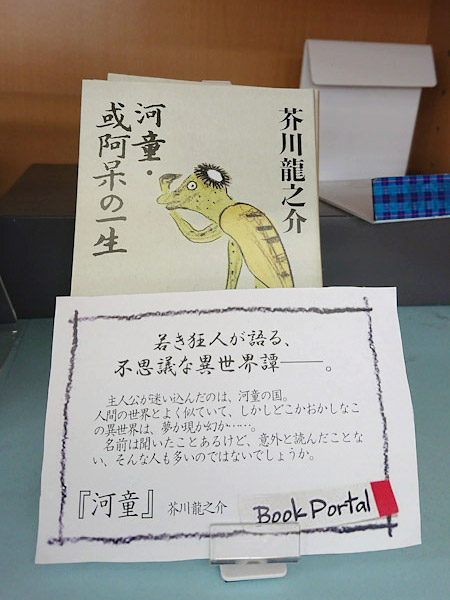 河童・
或阿呆の一生
芥川龍之介
若き狂人が語る、
不思議な異世界譚――。
主人公が迷い込んだのは、河童の国。
人間の世界とよく似ていて、しかしどこかおかしなこ
の異世界は、夢か現か幻か……。
名前は聞いたことあるけど、意外と読んだことな
い、そんな人も多いのではないでしょうか。
『河童』 芥川龍之介
Book Portal